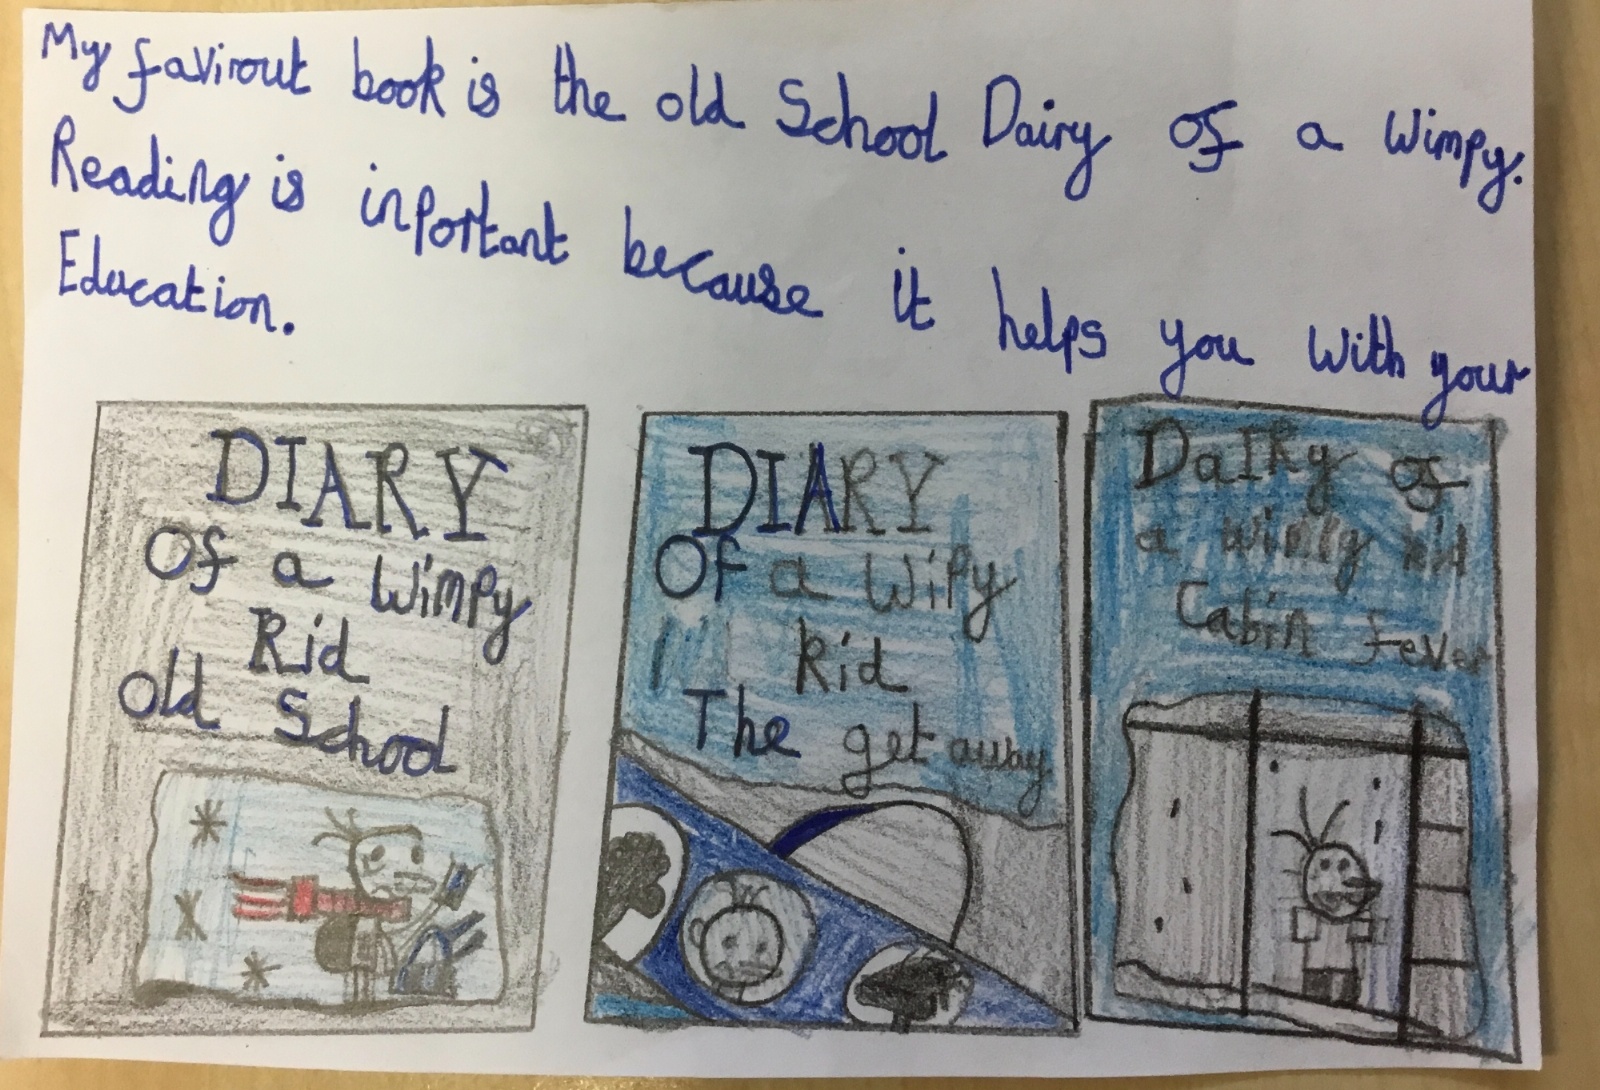 My favirout book is the old School Dairy of a Wimpy.
Reading is inportant because it helps you with your
Education.
DIARY
Of a Wimpy
Kid
Old School
DIARY
Of a Wipy
kid
The get away
Dairy of
a wimpy kid
Cabin fever